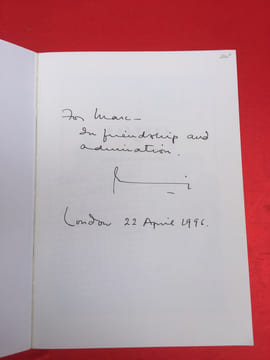 For Marc —
In friendship and
admiration.
London 22 April 1996.